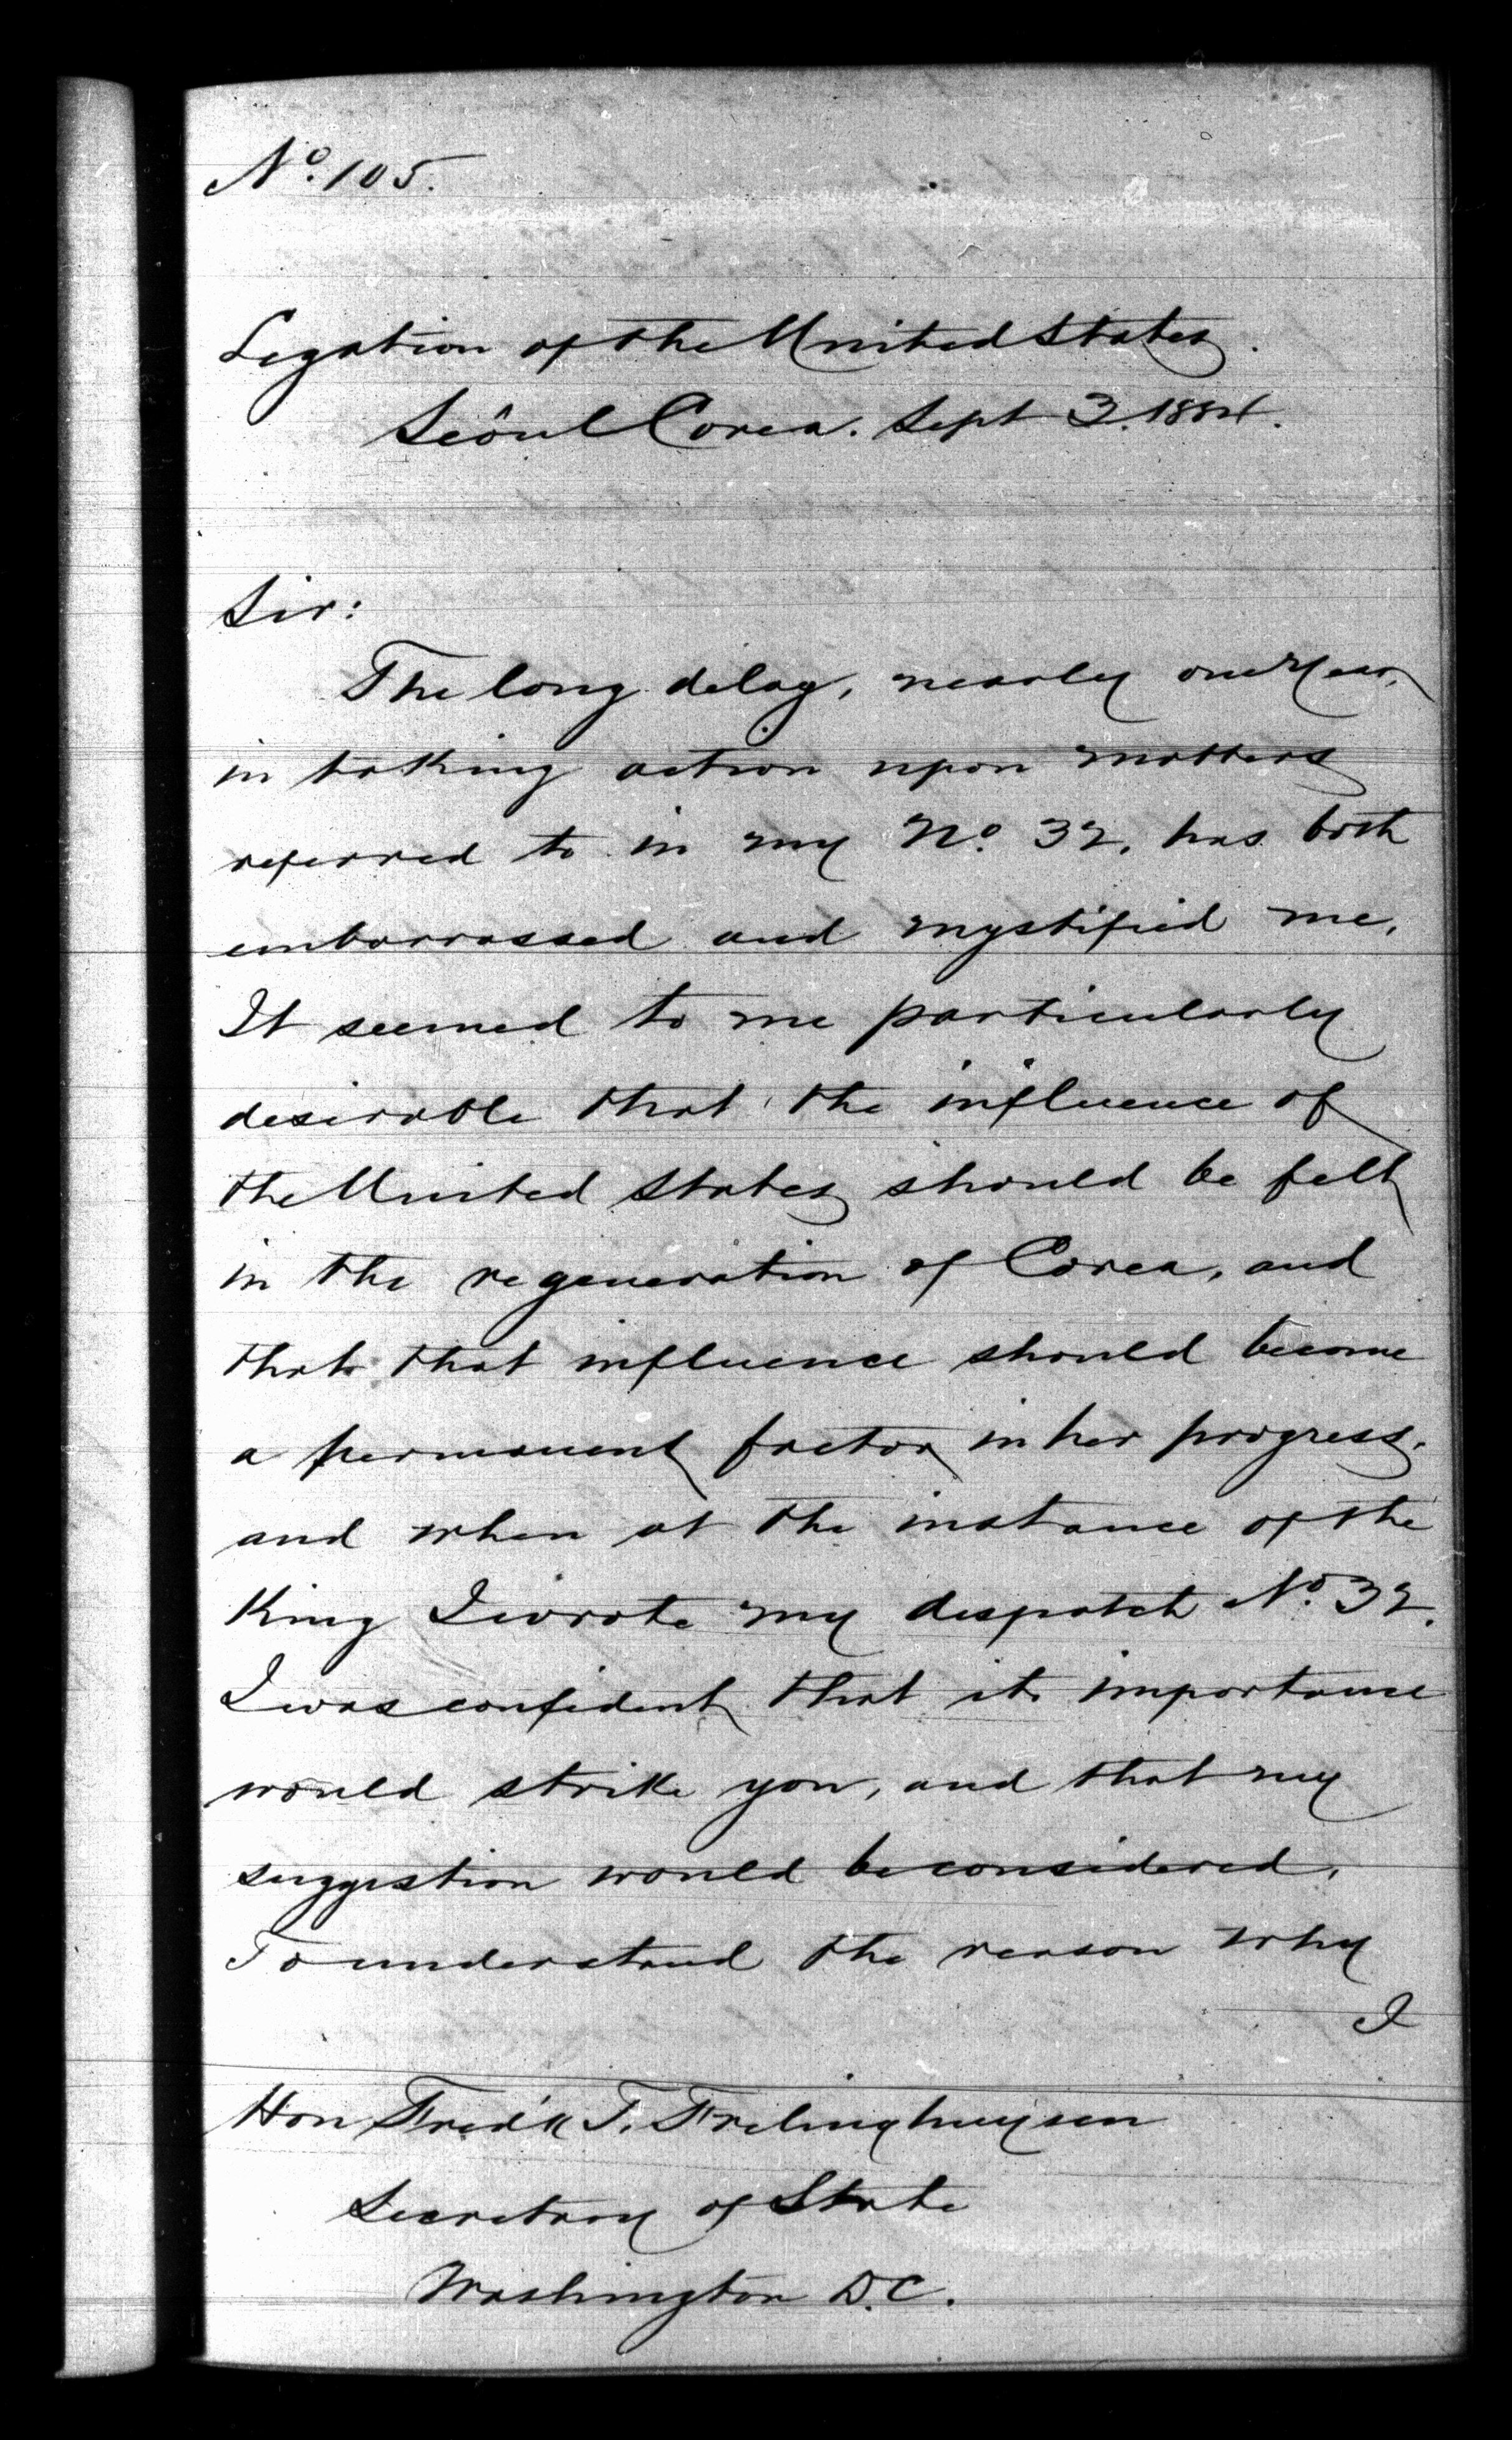 Nº. 105.
Legation of the United States.
Seôul Corea. Sept 3. 1884.
Sir:
The long delay, nearly one year,
in taking action upon matters
referred to in my Nº. 32, has both
embarrassed and mystified me.
It seemed to me particularly
desirable that the influence of
the United States should be felt
in the regeneration of Corea, and
that that influence should become
a permanent factor in her progress.
and when at the instance of the
King I wrote my despatch Nº. 32.
I was confident that its importance
would strike you, and that my
suggestion would be considered.
To understand the reason why
I
Hon Fred'k T. Frelinghuysen
Secretary of State
Washington D.C.